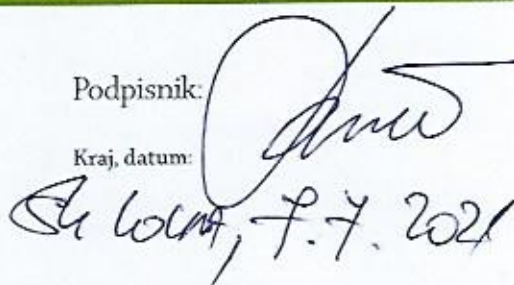 Podpisnik:
Kraj, datum:
Šk Loka, 7.7. 2021